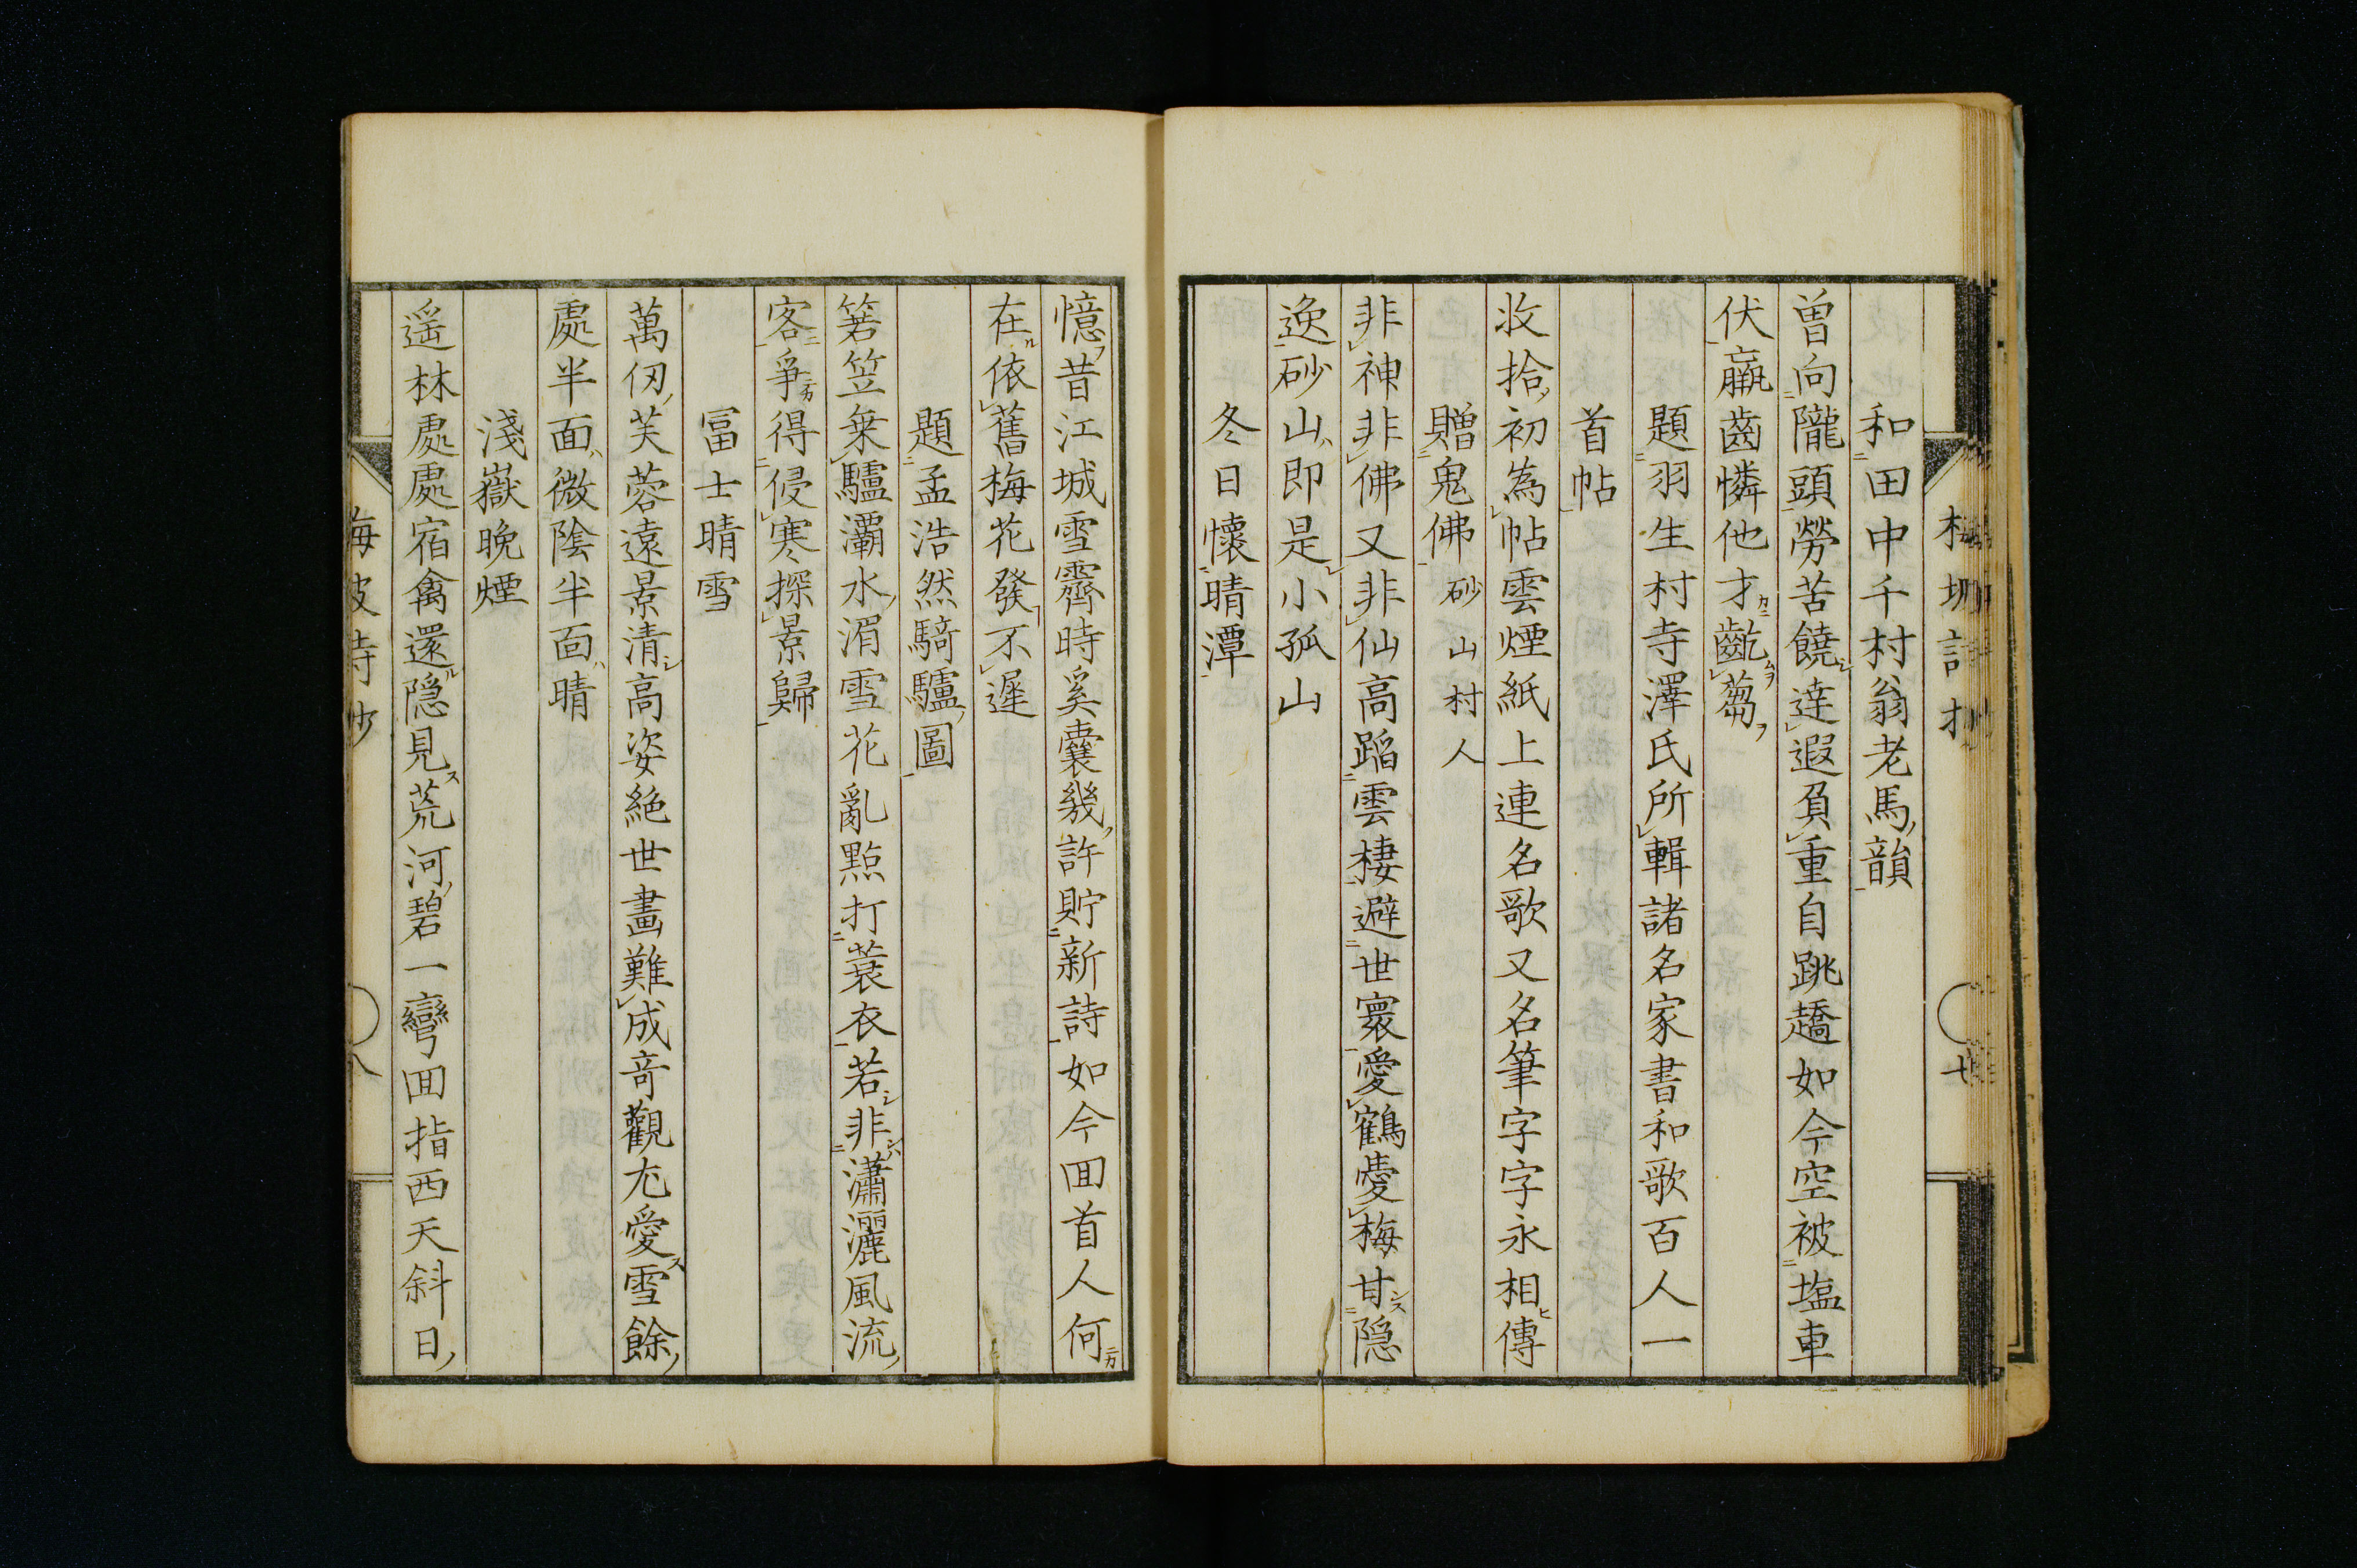 和田中千村翁老馬韻
曽向隴頭勞苦饒達遐負重自跳趫如今空被塩車
伏羸齒憐他才齕蒭
題羽生村寺澤氏所輯諸名家書和歌百人一
首帖
收拾初為帖雲煙紙上連名歌又名筆字字永相傳
贈鬼佛 砂山村人
非神非佛又非仙高蹈雲棲避世寰愛鶴憂梅甘隠
逸砂山即是小孤山
冬日懷晴潭
憶昔江城雪霽時奚囊幾許貯新詩如今回首人何
在依舊梅花發不遲
題孟浩然騎驢圖
箬笠乗驢灞水湄雪花亂㸃打蓑衣若非瀟灑風流
客爭得侵寒探景歸
冨士晴雪
萬仞芙蓉遠景清高姿絶世畫難成竒觀尤愛雪餘
處半面微陰半面晴
淺嶽晩煙
遥林處處宿禽還隠見荒河碧一彎回指西天斜日
八